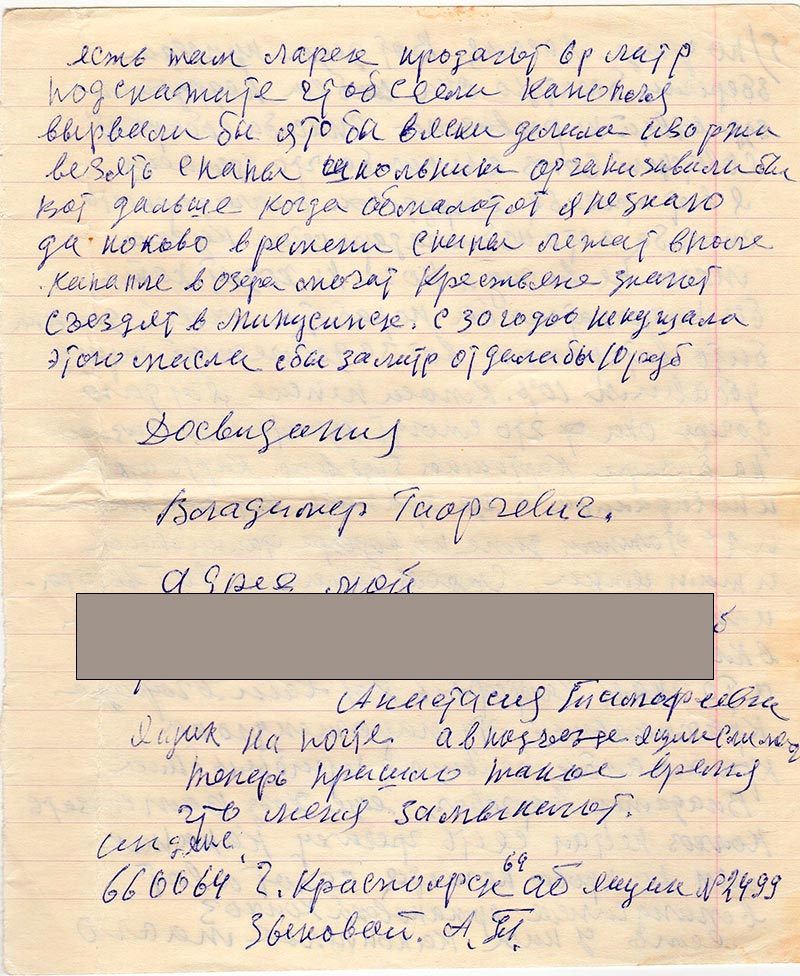 есть там ларек продают 8 р литр
подскажите чтоб сеели канопля
вырвали бы я то ба вяски делила и
везять снапы школьники организавали бы
вот дальше когда обмалотют я незнаю
да поково времени снапы лежат вполе
канапле в озера мочат Крестьяне знают
съездят в минусинск. с 30 годов некушала
этого масла сбы за литр отдалабы 10 руб
Досвидания
Владимер Гиоргевич.
адрес мой
б
Анастасия Тимофеевна
Ящик на почте, а в подъезде ящики
теперь пришло такое время
что меня замыкают.
индекс.
660064 г. Красноярск 64 аб ящик №2499
Зыковой. А. Т.